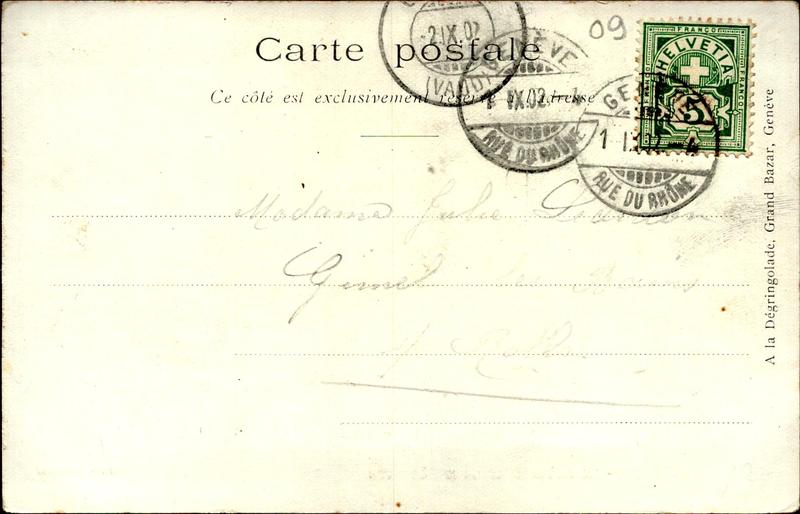 -2.IX.02
(VAUD)
Carte postale
Ce côté est exclusivement réservé à l'adresse
IX.02.
RUE DU RHÔNE
09
FRANCO
HELVETIA
FRANCO
5
1
RUE DU RHÔNE
Madame Julie
Gimel les Bains
A la Dégringolade, Grand Bazar, Genève